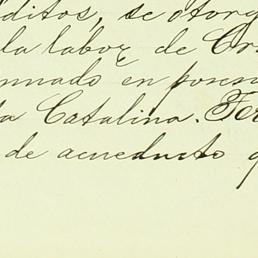 ditos, se otorg
la labor de Cr
nnado en poses
a Catalina. Fer
de acueducto q